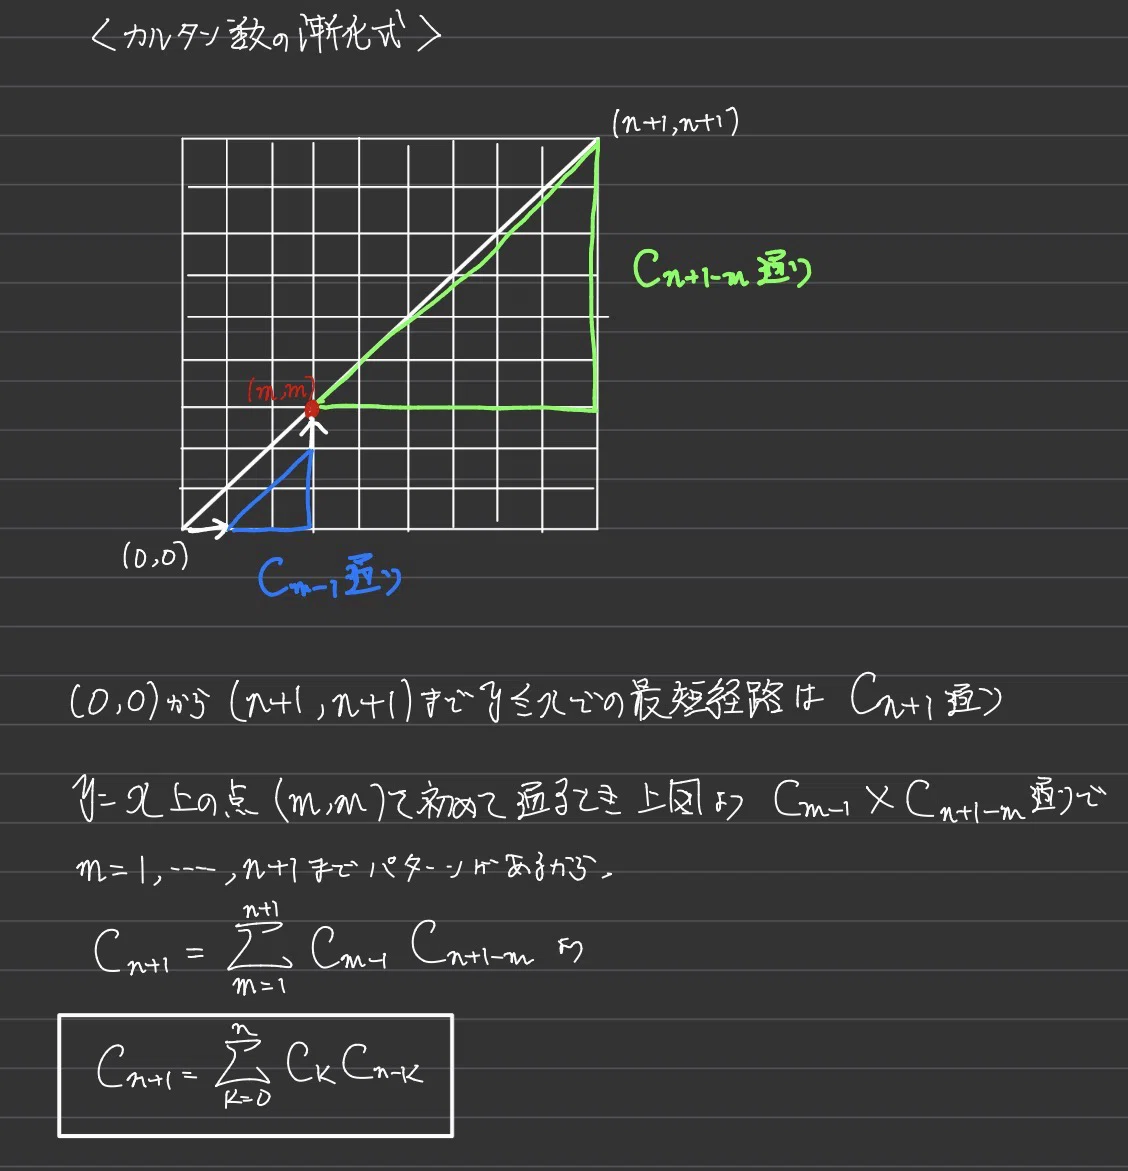 <カルタン数の漸化式>
(n+1,n+1)
C_{n+1-m}通り
(m,m)
(0,0)
C_{m-1}通り
(0,0)から(n+1,n+1)までy≦xでの最短経路は C_{n+1}通り
y=x上の点(m,m)で初めて通るとき上図より C_{m-1}×C_{n+1-m}通りで
m=1,……,n+1までパターンがあるから.
C_{n+1} = \sum_{m=1}^{n+1} C_{m-1} C_{n+1-m} より
C_{n+1} = \sum_{k=0}^{n} C_k C_{n-k}